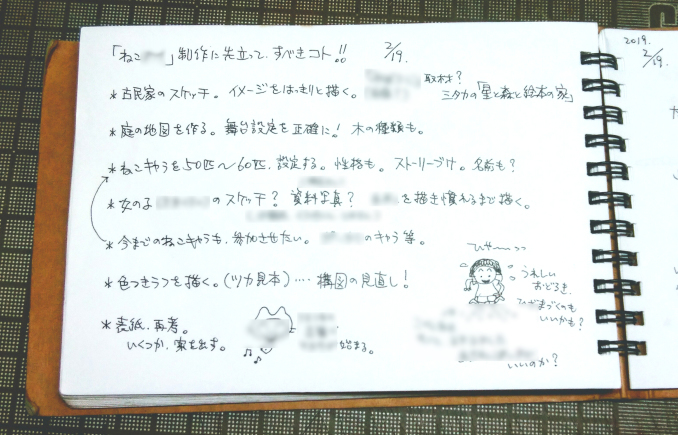 「ねこ 」制作に先立って、すべきコト!! 2/19.
*古民家のスケッチ。イメージをはっきりと描く。 取材?
ミタカの「星と森と絵本の家」
*庭の地図を作る。舞台設定を正確に! 木の種類も。
*ねこキャラを50匹〜60匹、設定する。性格も。ストーリーづけ。名前も?
*女の子 のスケッチ? 資料写真? を描き慣れるまで描く。
*今までのねこキャラも、参加させたい。 のキャラ等。
*色つきラフを描く。(ツカ見本)‥‥構図の見直し!
*表紙、再考。
いくつか、案を出す。
始まる。
ひゃ〜っっ
うれしい
おどろき、
ひざまづくのも
いいかも?
いいのか?
2019.
2/19.